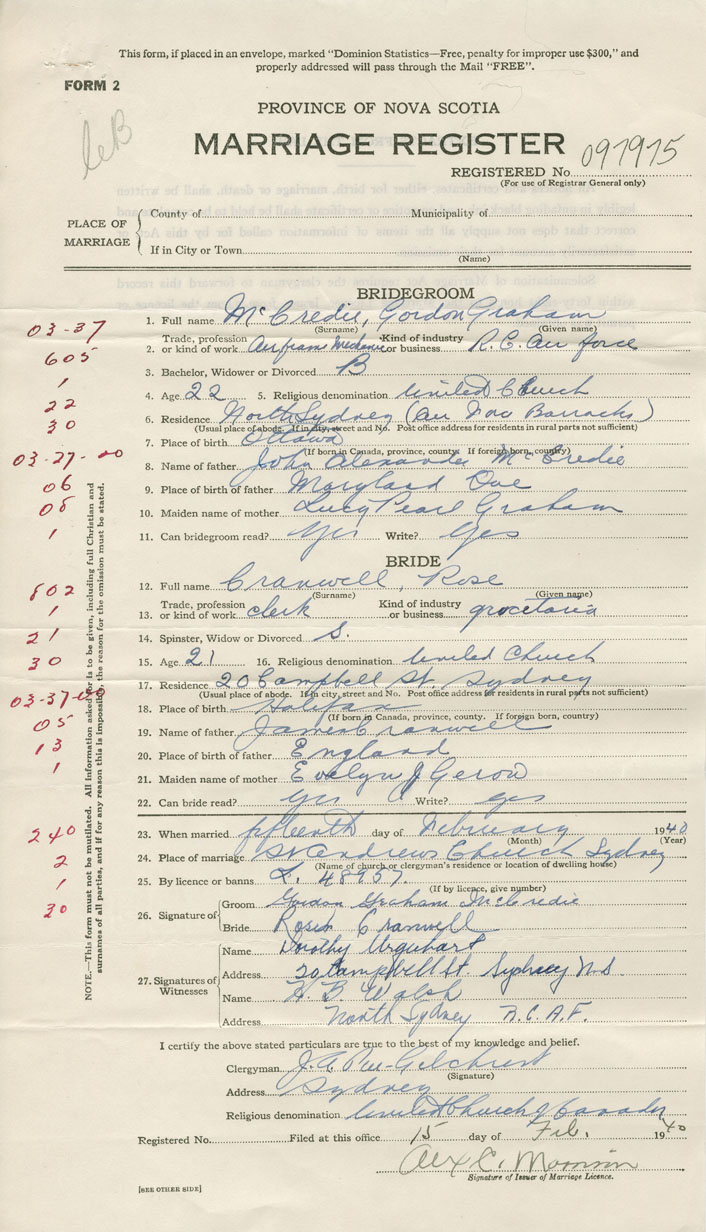 This form, if placed in an envelope, marked "Dominion Statistics—Free, penalty for improper use $300," and
properly addressed will pass through the Mail "FREE".
FORM 2
PROVINCE OF NOVA SCOTIA
MARRIAGE REGISTER
REGISTERED No. 097975
(For use of Registrar General only)
PLACE OF MARRIAGE
County of Municipality of
If in City or Town
(Name)
BRIDEGROOM
03-37
1. Full name McCredie, Gordon Graham
(Surname) (Given name)
605
2. Trade, profession or kind of work Airframe Mechanic Kind of industry or business R.C. Air force
1
3. Bachelor, Widower or Divorced B
22
4. Age 22 5. Religious denomination United Church
30
6. Residence North Sydney (Air Barracks)
(Usual place of abode. If in city, street and No. Post office address for residents in rural parts not sufficient)
7. Place of birth Ottawa
(If born in Canada, province, county. If foreign born, country)
03-27-00
8. Name of father John Alexander McCredie
06
9. Place of birth of father Maryland
08
10. Maiden name of mother Lucy Pearl Graham
1
11. Can bridegroom read? Yes Write? Yes
BRIDE
802
12. Full name Cranwell, Rose
(Surname) (Given name)
1
13. Trade, profession or kind of work clerk Kind of industry or business groceteria
21
14. Spinster, Widow or Divorced S.
30
15. Age 21 16. Religious denomination United Church
17. Residence 20 Campbell St. Sydney
(Usual place of abode. If in city, street and No. Post office address for residents in rural parts not sufficient)
03-37-00
18. Place of birth Halifax
(If born in Canada, province, county. If foreign born, country)
05
19. Name of father James Cranwell
13
20. Place of birth of father England
1
21. Maiden name of mother Evelyn J Gerow
22. Can bride read? yes Write? yes
240
23. When married fifteenth day of February 1940
(Month) (Year)
2
24. Place of marriage St Andrews Church Sydney
(Name of church or clergyman's residence or location of dwelling house)
1
25. By licence or banns L. 48957.
(If by licence, give number)
30
26. Signature of
Groom Gordon Graham McCredie
Bride Cranwell
27. Signatures of Witnesses
Name Dorothy Urquhart
Address 20 Campbell St. Sydney N.S.
Name H. B. Walsh
Address North Sydney R.C.A.F.
I certify the above stated particulars are true to the best of my knowledge and belief.
Clergyman
(Signature)
Address Sydney
Religious denomination United Church of Canada
Registered No. Filed at this office 15 day of Feb. 1940
Alex C. Morrison
Signature of Issuer of Marriage Licence.
[SEE OTHER SIDE]
NOTE.—This form must not be mutilated. All information asked for is to be given, including full Christian and
surnames of all parties, and if for any reason this is impossible, the reason for the omission must be stated.